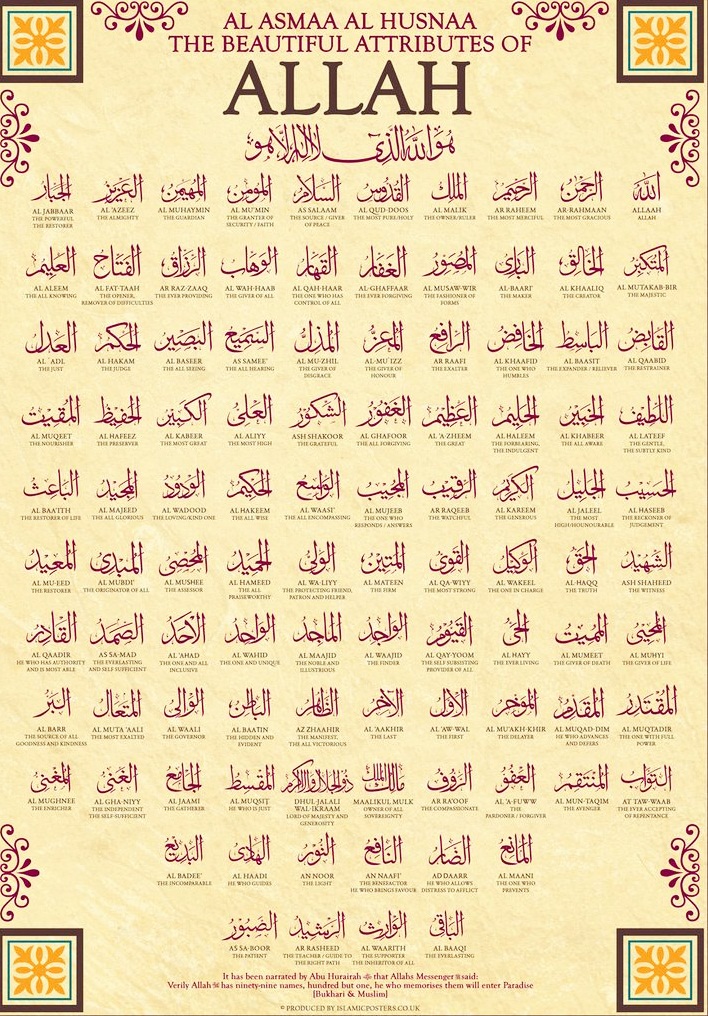 AL ASMAA AL HUSNAA
THE BEAUTIFUL ATTRIBUTES OF
ALLAH
هو الله الذي لا إله إلا هو
الله
ALLAAH
ALLAH
الرحمن
AR-RAHMAAN
THE MOST GRACIOUS
الرحيم
AR RAHEEM
THE MOST MERCIFUL
الملك
AL MALIK
THE OWNER/RULER
القدوس
AL QUD-DOOS
THE MOST PURE/HOLY
السلام
AS SALAAM
THE SOURCE / GIVER
OF PEACE
المؤمن
AL MU'MIN
THE GRANTER OF
SECURITY / FAITH
المهيمن
AL MUHAYMIN
THE GUARDIAN
العزيز
AL 'AZEEZ
THE ALMIGHTY
الجبار
AL JABBAAR
THE POWERFUL
THE RESTORER
المتكبر
AL MUTAKAB-BIR
THE MAJESTIC
الخالق
AL KHAALIQ
THE CREATOR
البارئ
AL-BAARI'
THE MAKER
المصور
AL MUSAW-WIR
THE FASHIONER OF
FORMS
الغفار
AL-GHAFFAAR
THE EVER FORGIVING
القهار
AL QAH-HAAR
THE ONE WHO HAS
CONTROL OF ALL
الوهاب
AL WAH-HAAB
THE GIVER OF ALL
الرزاق
AR RAZ-ZAAQ
THE EVER PROVIDING
الفتاح
AL FAT-TAAH
THE OPENER,
REMOVER OF DIFFICULTIES
العليم
AL ALEEM
THE ALL KNOWING
القابض
AL QAABID
THE RESTRAINER
الباسط
AL BAASIT
THE EXPANDER / RELIEVER
الخافض
AL KHAAFID
THE ONE WHO
HUMBLES
الرافع
AR RAAFI
THE EXALTER
المعز
AL-MU'IZZ
THE GIVER OF
HONOUR
المذل
AL MU-ZHIL
THE GIVER OF
DISGRACE
السميع
AS SAMEE'
THE ALL HEARING
البصير
AL BASEER
THE ALL SEEING
الحكم
AL HAKAM
THE JUDGE
العدل
AL `ADL
THE JUST
اللطيف
AL LATEEF
THE GENTLE,
THE SUBTLY KIND
الخبير
AL KHABEER
THE ALL AWARE
الحليم
AL HALEEM
THE FORBEARING,
THE INDULGENT
العظيم
AL 'A-ZHEEM
THE GREAT
الغفور
AL GHAFOOR
THE ALL FORGIVING
الشكور
ASH SHAKOOR
THE GRATEFUL
العلي
AL ALIYY
THE MOST HIGH
الكبير
AL KABEER
THE MOST GREAT
الحفيظ
AL HAFEEZ
THE PRESERVER
المقيت
AL MUQEET
THE NOURISHER
الحسيب
AL HASEEB
THE RECKONER OF
JUDGEMENT
الجليل
AL JALEEL
THE MOST
HIGH/HOUNOURABLE
الكريم
AL KAREEM
THE GENEROUS
الرقيب
AR RAQEEB
THE WATCHFUL
المجيب
AL MUJEEB
THE ONE WHO
RESPONDS / ANSWERS
الواسع
AL WAASI'
THE ALL ENCOMPASSING
الحكيم
AL HAKEEM
THE ALL WISE
الودود
AL WADOOD
THE LOVING/KIND ONE
المجيد
AL MAJEED
THE ALL-GLORIOUS
الباعث
AL BAA'ITH
THE RESTORER OF LIFE
الشهيد
ASH SHAHEED
THE WITNESS
الحق
AL-HAQQ
THE TRUTH
الوكيل
AL WAKEEL
THE ONE IN CHARGE
القوي
AL QA-WIYY
THE MOST STRONG
المتين
AL MATEEN
THE FIRM
الولي
AL WA-LIYY
THE PROTECTING FRIEND,
PATRON AND HELPER
الحميد
AL HAMEED
THE ALL
PRAISEWORTHY
المحصي
AL MUSHEE
THE ASSESSOR
المبدئ
AL MUBDI'
THE ORIGINATOR OF ALL
المعيد
AL MU-EED
THE RESTORER
المحيي
AL MUHYI
THE GIVER OF LIFE
المميت
AL MUMEET
THE GIVER OF DEATH
الحي
AL HAYY
THE EVER LIVING
القيوم
AL QAY-YOOM
THE SELF SUBSISTING
PROVIDER OF ALL
الواجد
AL WAAJID
THE FINDER
الماجد
AL MAAJID
THE NOBLE AND
ILLUSTRIOUS
الواحد
AL WAHID
THE ONE AND UNIQUE
الأحد
AL 'AHAD
THE ONE AND ALL
INCLUSIVE
الصمد
AS SA-MAD
THE EVERLASTING
AND SELF-SUFFICIENT
القادر
AL QAADIR
HE WHO HAS AUTHORITY
AND IS MOST ABLE
المقتدر
AL MUQTADIR
THE ONE WITH FULL
POWER
المقدم
AL MUQAD-DIM
HE WHO ADVANCES
AND DEFERS
المؤخر
AL MU'AKH-KHIR
THE DELAYER
الأول
AL 'AW-WAL
THE FIRST
الآخر
AL 'AAKHIR
THE LAST
الظاهر
AZ ZHAAHIR
THE MANIFEST,
THE ALL VICTORIOUS
الباطن
AL BAATIN
THE HIDDEN AND
EVIDENT
الوالي
AL WAALI
THE GOVERNOR
المتعال
AL MUTA 'AALI
THE MOST EXALTED
البر
AL BARR
THE SOURCE OF ALL
GOODNESS AND KINDNESS
التواب
AT TAW-WAAB
THE EVER ACCEPTING
OF REPENTANCE
المنتقم
AL MUN-TAQIM
THE AVENGER
العفو
AL 'A-FUWW
THE
PARDONER / FORGIVER
الرؤوف
AR RA'OOF
THE COMPASSIONATE
مالك الملك
MAALIKUL MULK
OWNER OF ALL
SOVEREIGNTY
ذو الجلال والإكرام
DHUL-JALALI
WAL-IKRAAM
LORD OF MAJESTY AND
GENEROSITY
المقسط
AL MUQSIT
HE WHO IS JUST
الجامع
AL JAAMI
THE GATHERER
الغني
AL GHA-NIYY
THE INDEPENDENT
THE SELF-SUFFICIENT
المغني
AL MUGHNEE
THE ENRICHER
المانع
AL MAANI
THE ONE WHO
PREVENTS
الضار
AD DAARR
HE WHO ALLOWS
DISTRESS TO AFFLICT
النافع
AN NAAFI'
THE BENEFACTOR
HE WHO BRINGS FAVOUR
النور
AN NOOR
THE LIGHT
الهادي
AL HAADI
HE WHO GUIDES
البديع
AL BADEE'
THE INCOMPARABLE
الباقي
AL BAAQI
THE EVERLASTING
الوارث
AL WAARITH
THE SUPPORTER
THE INHERITOR OF ALL
الرشيد
AR RASHEED
THE TEACHER / GUIDE TO
THE RIGHT PATH
الصبور
AS SA-BOOR
THE PATIENT
It has been narrated by Abu Hurairah that Allahs Messenger ﷺ said:
Verily Allah ﷻ has ninety-nine names, hundred but one, he who memorises them will enter Paradise
[Bukhari & Muslim]
© PRODUCED BY ISLAMICPOSTERS.CO.UK